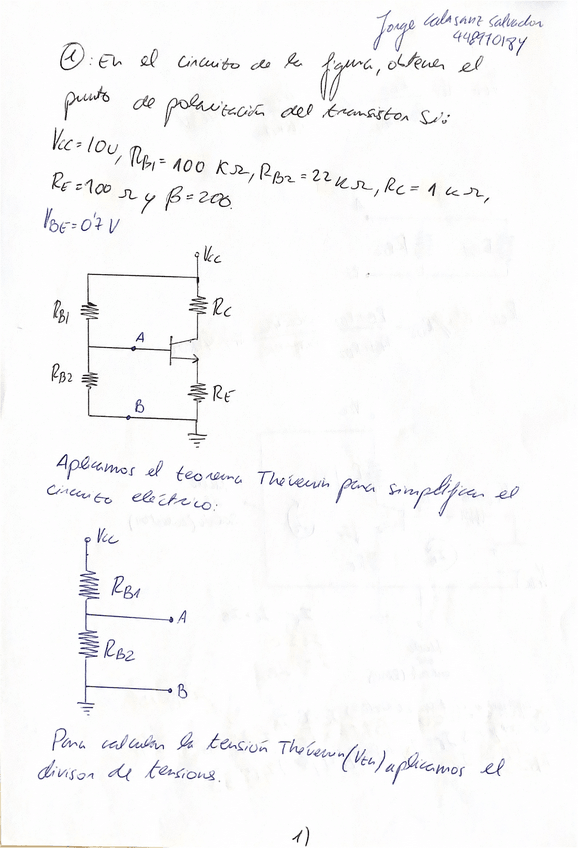 Jorge Calasanz Salvador
①: En el circuito de la figura, obtener el
punto de polarización del transistor si:
Vcc = 10V, RB1 = 100 KΩ, RB2 = 22 KΩ, RC = 1 KΩ,
RE = 100 Ω y β = 200.
VBE = 0'7 V
Vcc
RB1
RC
A
RB2
B
RE
Aplicamos el teorema Thévenin para simplificar el
circuito eléctrico:
Vcc
RB1
A
RB2
B
Para calcular la tensión Thévenin (Vth) aplicamos el
divisor de tensions.
1)